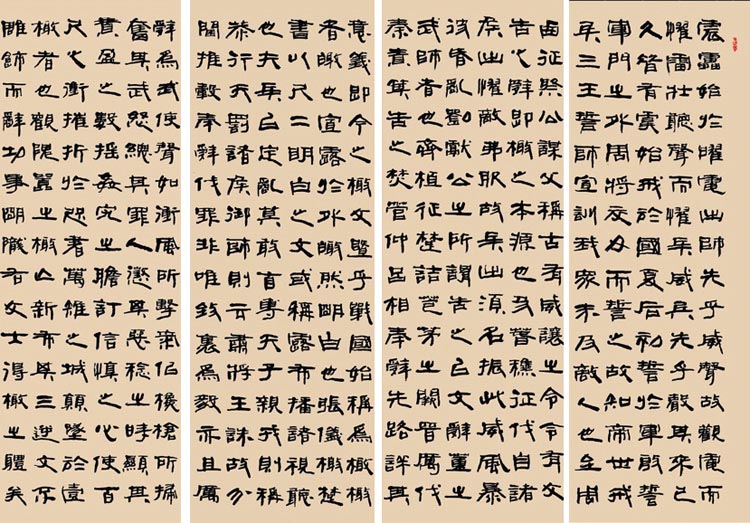 震靁始於曜電出師先乎威聲故觀電而
懼雷壯聽聲而懼兵威兵先乎聲其來已
久昔有虞始戒於國夏后初誓於軍殷誓
軍門之外周將交刃而誓之故知帝世戒
兵三王誓師宣訓我眾未及敵人也至周
西征祭公謀父稱古有威讓之令令有文
告之辭即檄之本源也及春秋征伐自諸
侯出懼敵弗服故兵出須名振此威風暴
彼昏亂劉獻公之所謂告之以文辭董之
武師者也齊桓征楚詰苞茅之闕晉厲伐
秦責箕告之焚管仲呂相奉辭先路詳其
意義即今之檄文暨乎戰國始稱為檄檄
者皦也宣露於外皦然明白也張儀檄楚
書以尺二明白之文或稱露布播諸視聽
也夫兵以定亂莫敢自專天子親戎則稱
恭行天罰諸侯御師則云肅將王誅故分
閫推轂奉辭伐罪非唯致果為毅亦且厲
辭為武使聲如衝風所擊氣似欃槍所掃
奮其武怒總其罪人懲其惡稔之時顯其
貫盈之數搖姦宄之膽訂信慎之心使百
尺之衝摧折於咫書萬雉之城顛墜於壹
檄者也觀隗囂之檄亡新布其三逆文不
雕飾而辭切事明隴右文士得檄之體矣